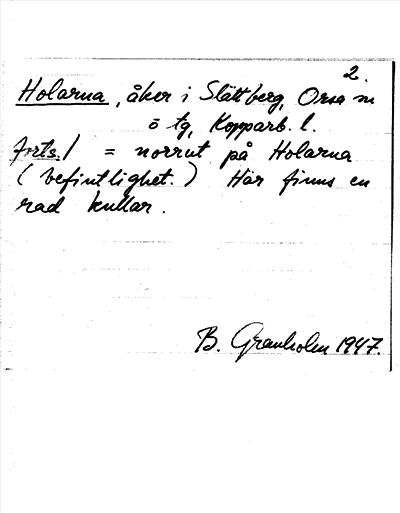 2.
Holarna, åker i Slättberg, Orsa sn
o tg, Kopparb. l.
forts./ = norrut på Holarna
(befintlighet.) Här finns en
rad kullar.
B. Granholm 1947.